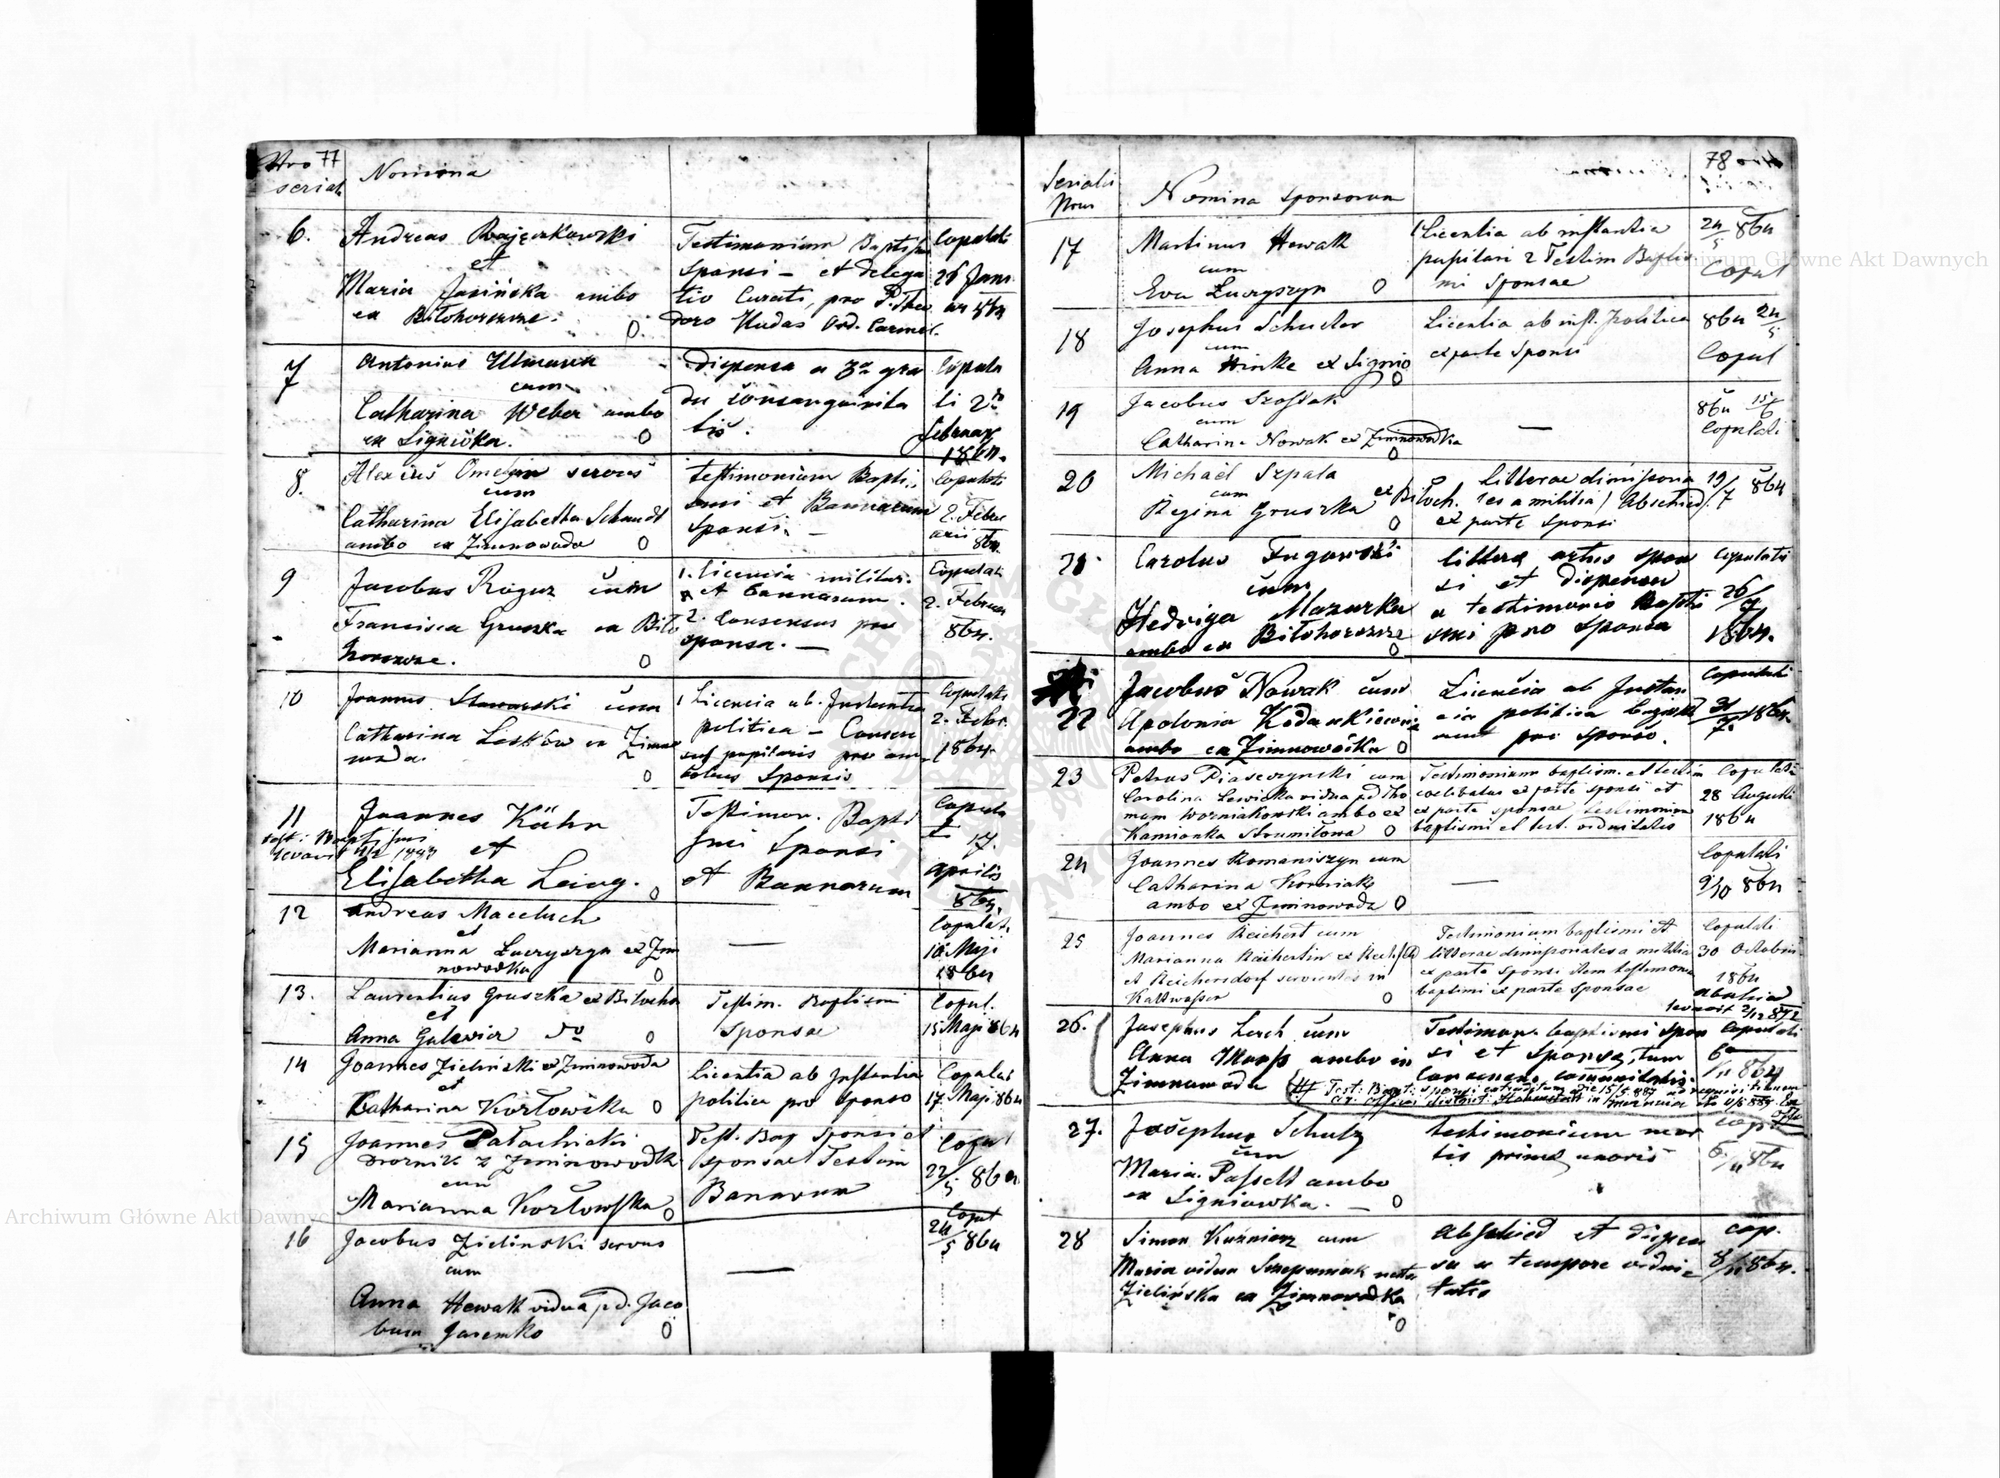 Nro 77
serial
Nomina
6. Andreas Rajczkowski
et
Maria Jasińska ambo
ex Biłohorszcze.
Testimonium Baptis
Sponsi – et delega
tio Curati, pro P. Theo
doro Hudas Ord. Carmel.
Copulati
26 Janu
ar 864
7 Antonius Ulmann
cum
Catharina Weber ambo
ex Signiówka.
Dispensa a 3o gra
du consanguinita
tis.
Copula
ti 2
Februar
1864.
8. Alexius servus
cum
Catharina Elisabetha Schmidt
ambo ex Zimnowoda
testimonium Bapti
smi et Bannorum
Sponsi. –
Copulati
2. Febru
arii
864.
9 Jacobus Roguz cum
Francisca Gruszka ex Biło
horszcze.
1. Licencia militar.
et bannorum.
2. Consensus pro
sponsa. –
Copulati
2. Februar
864.
10 Joannes Sławarski cum
Catharina Leśków ex Zimno
woda.
1 Licencia ab Instantia
politica – Consen
sus pupilaris pro am
bobus Sponsis
Copulati
2. Febr.
1864.
11 Joannes Kühn
et
Elisabetha Leing.
Testimon. Bapti
smi Sponsi
et Bannorum
Copula
ti
17.
Aprilis
864.
12 Andreas Maceluch
et
Marianna Ławryszyn ex Zim
nowodka
—
Copulati
10 Maji
1864
13. Laurentius Gruszka ex Biłohor
et
Anna Galewicz do
Testim. Baptismi
Sponsae
Copul.
15 Maji 864
14 Joannes Zieliński ex Zimnowoda
et
Catharina Kozłowska
Licentia ab Instantia
politica pro sponso
Copulat
17 Maji 864
15 Joannes Pałachicki
dwornik z Zimnowodki
cum
Marianna Kozłowska
Test. Bap Sponsi et
sponsae Testim
Banorum
Copul
22/5 864
16 Jacobus Zieliński servus
cum
Anna Hewak vidua p d. Jaco
bum Jaremko
—
Copul
24/5 864
78
Serialis
Nrus
Nomina Sponsorum
17 Martinus Hewak
cum
Eva Ławryszyn
Licentia ab instantia
pupilari 2 Testim Baptis
mi Sponsae
24/5 864
Copul
18 Josephus Schuster
cum
Anna Hinke ex Signio
Licentia ab inst. Politica
ex parte Sponsi
864 24/5
Copul
19 Jacobus Szostak
cum
Catharina Nowak ex Zimnowodka
—
864 15/6
Copulati
20 Michael Szpala
cum
Regina Gruszka ex Biłoh.
Litterae dimissoria
les a militia / Abschied /
ex parte Sponsi
19/7 864
21. Carolus
cum
Hedviga Mazurka
ambo ex Biłohorszcze
littera artus spon
si et dispensa
a testimonio Bapti
smi pro sponsa
Copulati
26/7
1864.
22 Jacobus Nowak cum
Apolonia
ambo ex Zimnowodka
Licencia ab Instan
cia politica
pro sponso.
Copulati
31/7 1864.
23 Petrus Piaseczynski cum
Carolina Lewicka vidua pd Tho
mam Worniakowski ambo ex
Kamionka Strumiłowa
Testimonium baptism. et testim
coelibatus ex parte sponsi et
ex parte sponsae testimonium
baptismi et test. viduitatis
Copulati
28 Augusti
1864
24 Joannes Romaniszyn cum
Catharina Korniak
ambo ex Zimnowoda
—
Copulati
9/10 864
25 Joannes Reichert cum
Marianna Reichertin ex
et Reichersdorf servientes in
Kaltwasser
Testimonium baptismi et
litterae dimissoriales a militia
ex parte sponsi item testimoniu
baptismi ex parte sponsae
Copulati
30 Octobris
1864
26. Josephus Lerch cum
Anna ambo in
Zimnawoda
Testimonia baptismi spon
si et sponsae, tum
Copulati
6/11 864
27. Josephus Schulz
cum
Maria Passelt ambo
ex Signiowka. –
testimonium mor
tis primae uxoris
Cop
6/11 864
28 Simon Kuśnierz cum
Maria vidua Szczepaniak nata
Zielińska ex Zimnowodka
Abschied et dispen
sa a tempore vidui
tatis
Cop.
8/11 864.
Archiwum Główne Akt Dawnych
Archiwum Główne Akt Dawnych